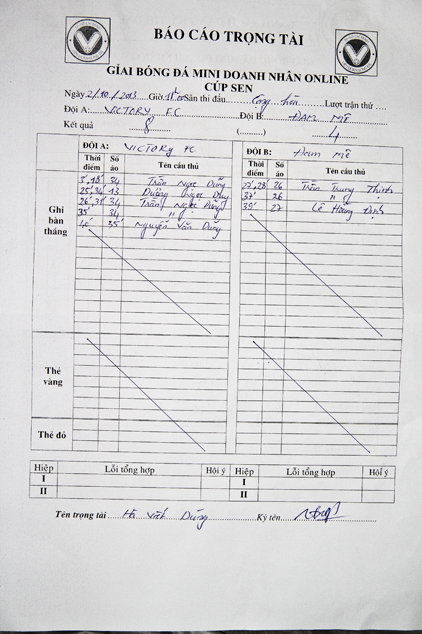 BÁO CÁO TRỌNG TÀI
GIẢI BÓNG ĐÁ MINI DOANH NHÂN ONLINE
CÚP SEN
Ngày 2/10/2013 Giờ Sân thi đấu Công Lượt trận thứ ....
Đội A: VICTORY FC Đội B: ĐAM MÊ
Kết quả 8 (..........) 4
ĐỘI A: VICTORY FC ĐỘI B: Đam Mê
Thời điểm Số áo Tên cầu thủ Thời điểm Số áo Tên cầu thủ
Ghi bàn thắng
3', 18' 34 Trần Ngọc Dũng 27', 28' 26 Trần Trung Thịnh
25', 34' 13 Dương 37' 26 "
26', 31' 34 Trần Ngọc Dũng 39' 27 Lê Hoàng Định
35' 34 "
40' 35 Nguyễn Văn Dũng
Thẻ vàng
Thẻ đỏ
Hiệp Lỗi tổng hợp Hội ý Hiệp Lỗi tổng hợp Hội ý
I I
II II
Tên trọng tài Hà Vĩnh Dũng Ký tên